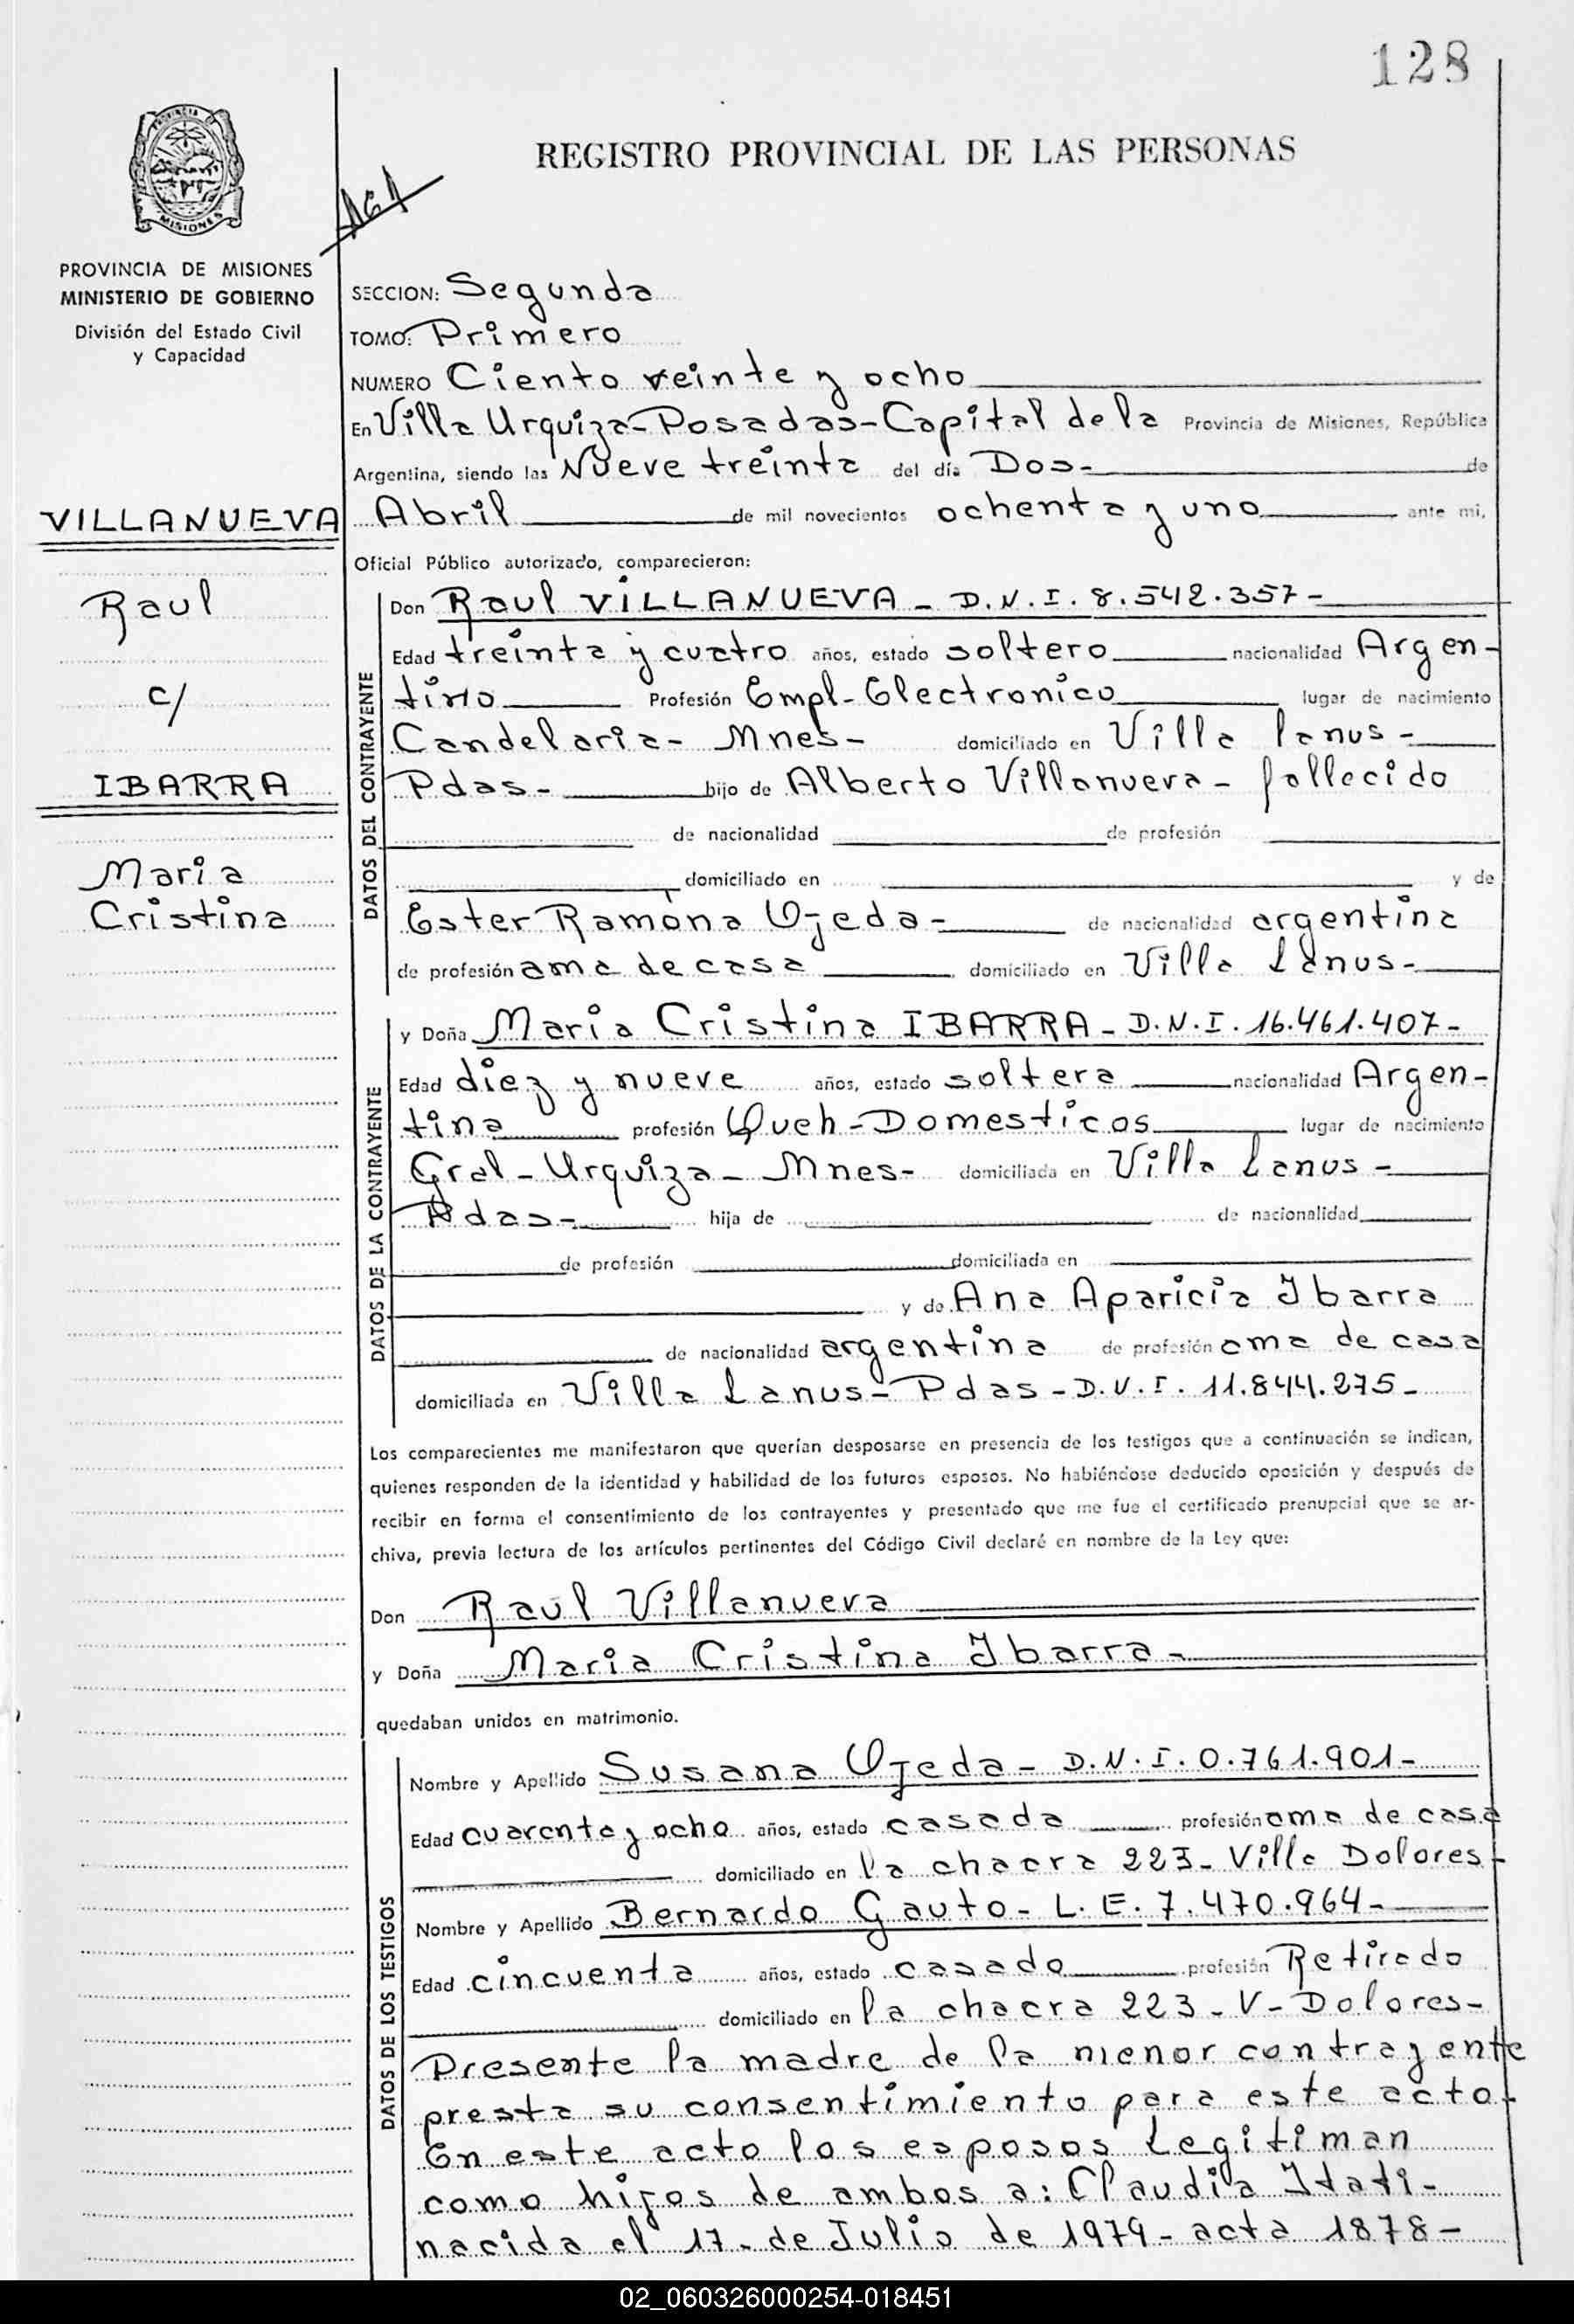 128
REGISTRO PROVINCIAL DE LAS PERSONAS
PROVINCIA DE MISIONES
MINISTERIO DE GOBIERNO
División del Estado Civil
y Capacidad
SECCION: Segunda
TOMO: Primero
NUMERO Ciento veinte y ocho
En Villa Urquiza-Posadas-Capital de la Provincia de Misiones, República
Argentina, siendo las Nueve treinta del día Dos- de
Abril de mil novecientos ochenta y uno ante mi,
Oficial Público autorizado, comparecieron:
VILLANUEVA
Raul
c/
IBARRA
Maria
Cristina
DATOS DEL CONTRAYENTE
Don Raul VILLANUEVA - D.N.I. 8.542.357-
Edad treinta y cuatro años, estado soltero nacionalidad Argen-
tino Profesión Empl-Electronico lugar de nacimiento
Candelaria- Mnes- domiciliado en Villa Lanus-
Pdas- hijo de Alberto Villanueva - fallecido
de nacionalidad de profesión
domiciliado en y de
Ester Ramona Ojeda- de nacionalidad argentina
de profesión ama de casa domiciliado en Villa Lanus-
DATOS DE LA CONTRAYENTE
y Doña Maria Cristina IBARRA - D.N.I. 16.461.407-
Edad diez y nueve años, estado soltera nacionalidad Argen-
tina profesión Queh-Domesticos lugar de nacimiento
Gral-Urquiza- Mnes- domiciliada en Villa Lanus-
Pdas- hija de de nacionalidad
de profesión domiciliada en
y de Ana Aparicia Ibarra
de nacionalidad argentina de profesión ama de casa
domiciliada en Villa Lanus- Pdas - D.N.I. 11.844.275-
Los comparecientes me manifestaron que querían desposarse en presencia de los testigos que a continuación se indican,
quienes responden de la identidad y habilidad de los futuros esposos. No habiéndose deducido oposición y después de
recibir en forma el consentimiento de los contrayentes y presentado que me fue el certificado prenupcial que se ar-
chiva, previa lectura de los artículos pertinentes del Código Civil declaré en nombre de la Ley que:
Don Raul Villanueva
y Doña Maria Cristina Ibarra-
quedaban unidos en matrimonio.
DATOS DE LOS TESTIGOS
Nombre y Apellido Susana Ojeda - D.N.I. 0.761.901-
Edad cuarenta y ocho años, estado casada profesión ama de casa
domiciliado en la chacra 223- Villa Dolores-
Nombre y Apellido Bernardo Gauto - L.E. 7.470.964-
Edad cincuenta años, estado casado profesión Retirado
domiciliado en la chacra 223 - V- Dolores-
Presente la madre de la menor contrayente
presta su consentimiento para este acto-
En este acto los esposos Legitiman
como hijos de ambos a: Claudia Itati-
nacida el 17- de Julio de 1979- acta 1878-
02_060326000254-018451